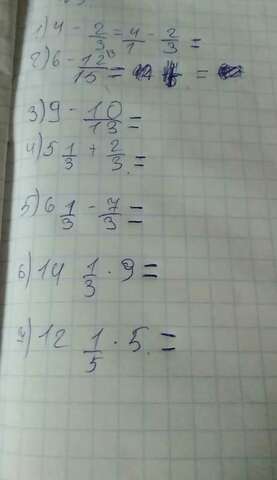 1) 4 - 2/3 = 4/1 - 2/3 =
2) 6 - 12/15 = =
3) 9 - 10/13 =
4) 5 1/3 + 2/3 =
5) 6 1/3 - 7/3 =
6) 14 1/3 · 9 =
7) 12 1/5 · 5 =